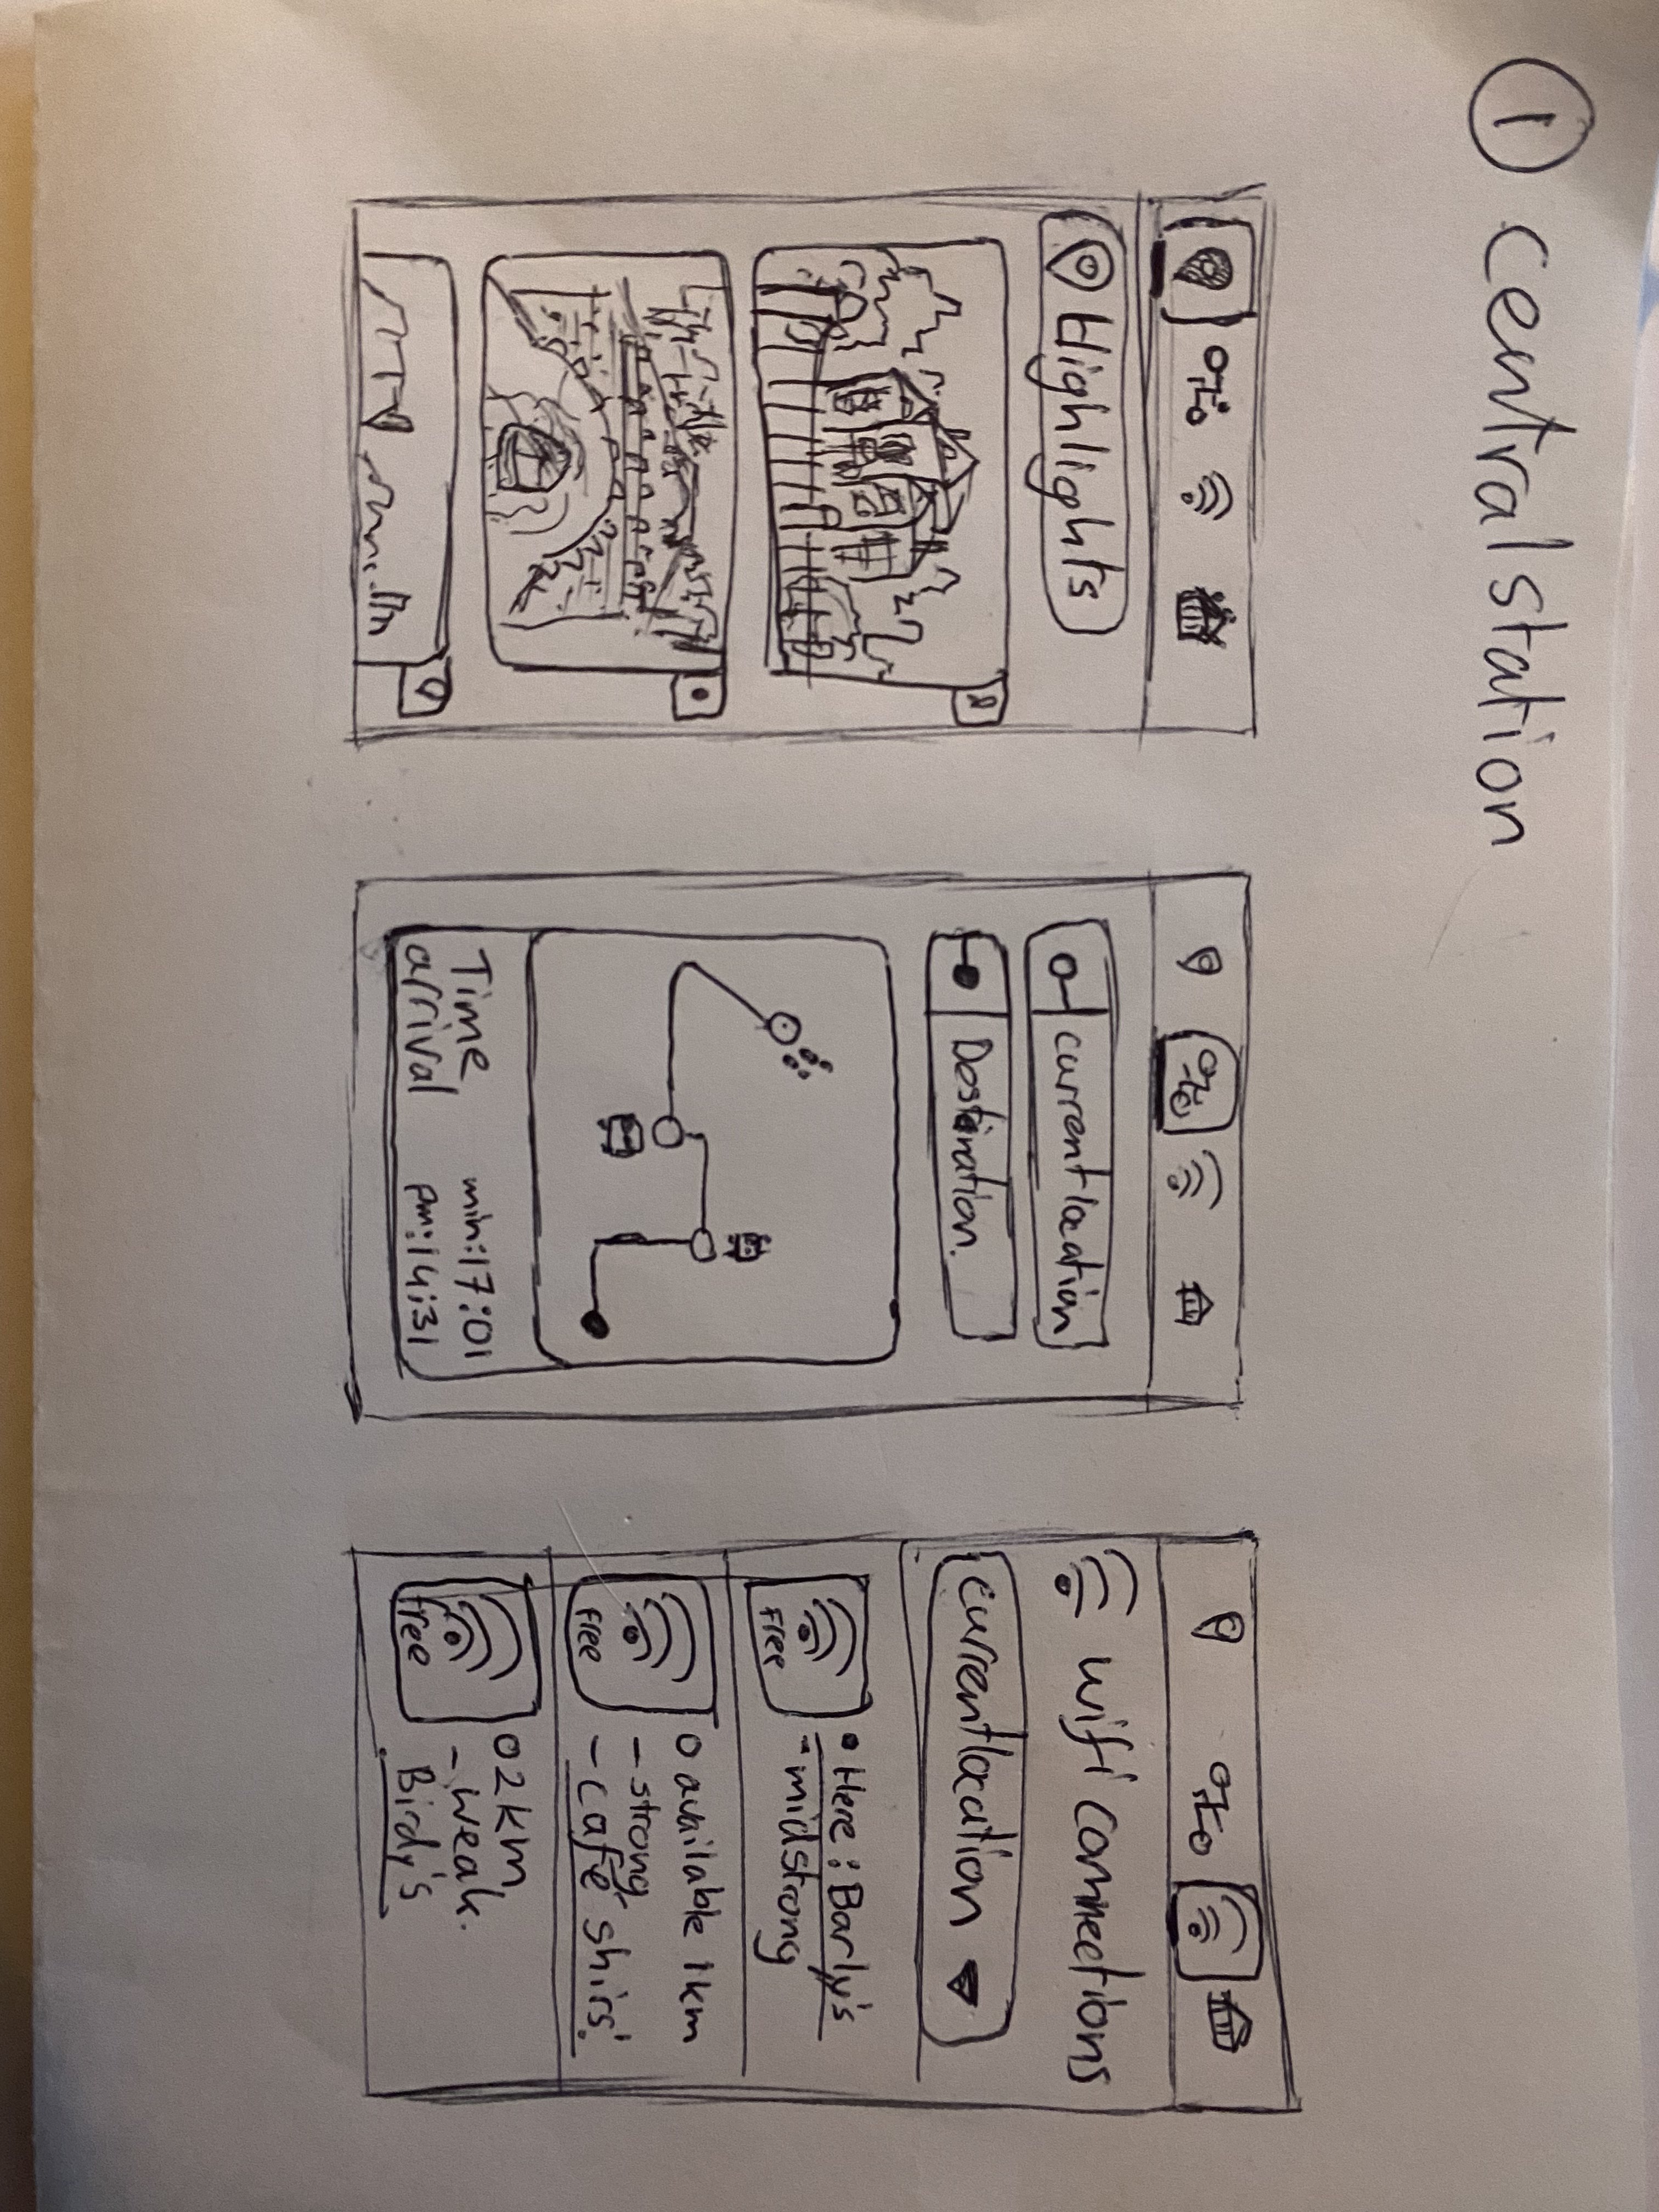 1 Central station
Highlights
currentlocation
Destination.
Time min:17:01
arrival pm:14:31
wifi connections
currentlocation
Here: Barly's
- midstrong
free
available 1km
- strong
- Cafe shirs'
free
2km
- weak.
Birdy's
free